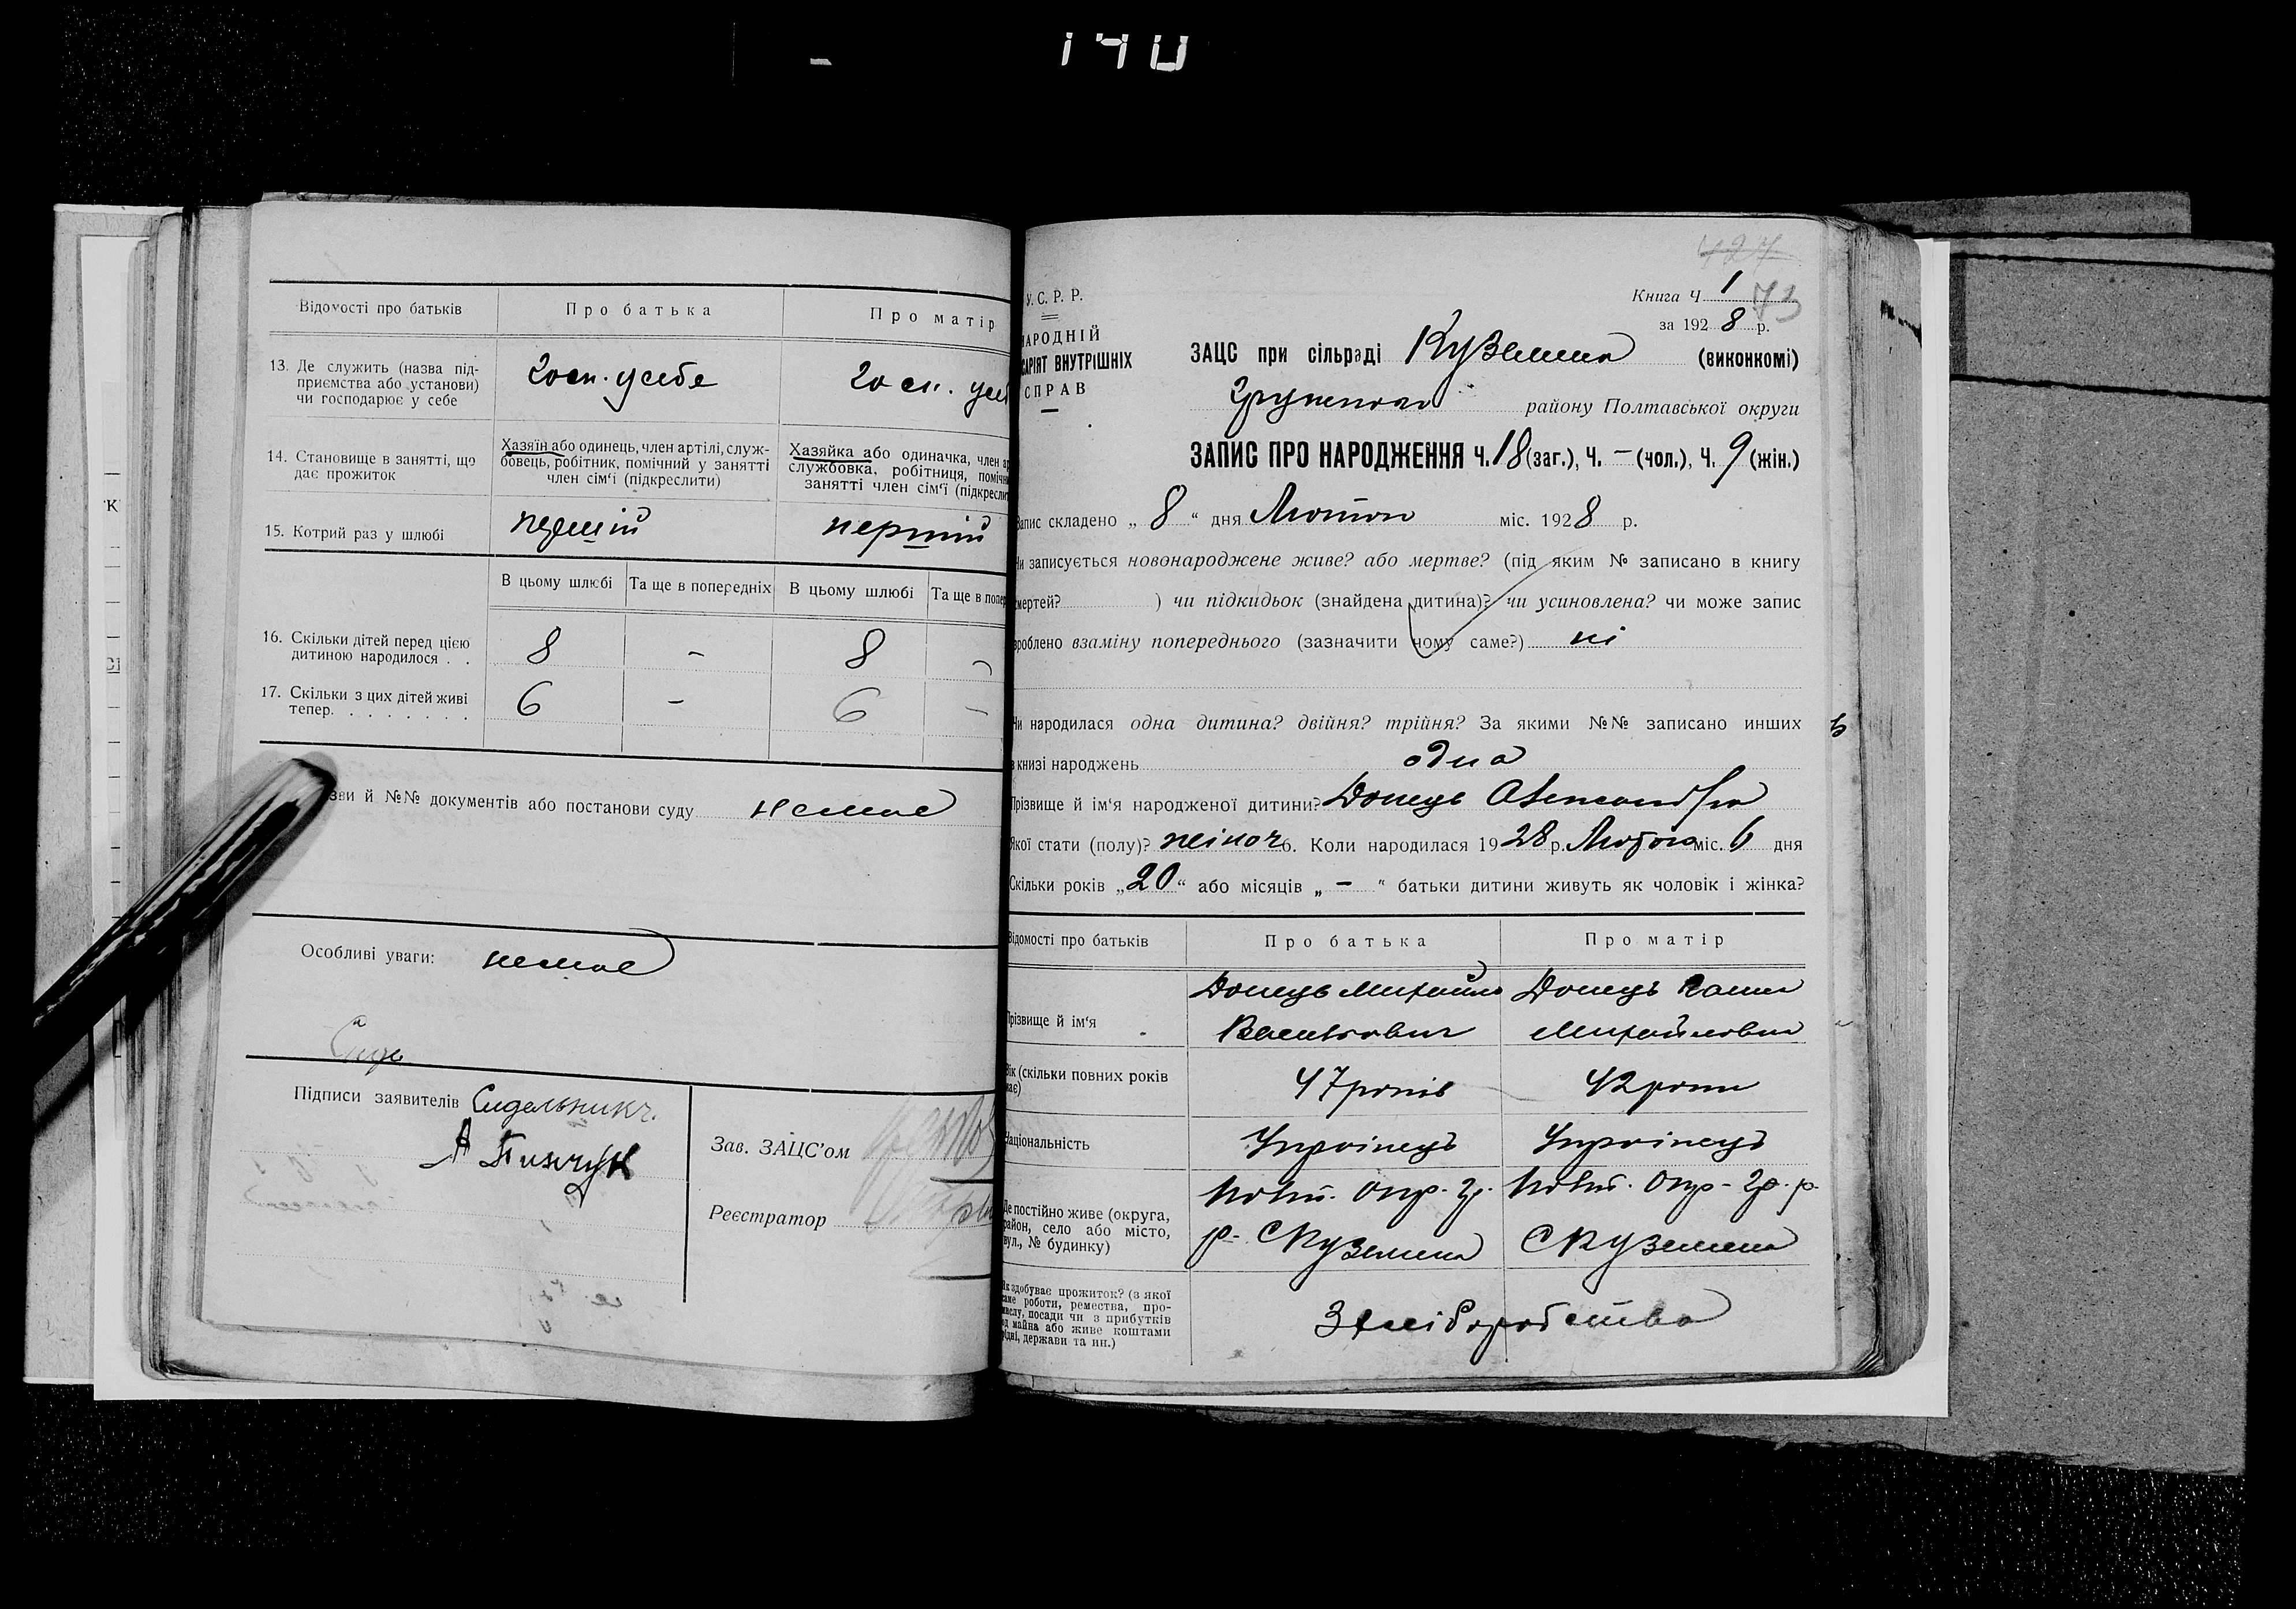 140
Відомості про батьків
Про батька
Про матір
13. Де служить (назва під-
приємства або установи)
чи господарює у себе
госп. усебе
госп. усеб
14. Становище в занятті, що
дає прожиток
Хазяїн або одинець, член артілі, служ-
бовець, робітник, помічний у занятті
член сім'ї (підкреслити)
Хазяйка або одиначка, член ар
службовка, робітниця, помічн
занятті член сім'ї (підкресли
15. Котрий раз у шлюбі
перший
перший
В цьому шлюбі
Та ще в попередніх
В цьому шлюбі
Та ще в попер
16. Скільки дітей перед цією
дитиною народилося . .
8 - 8 -
17. Скільки з цих дітей живі
тепер. . . . . . . .
6 - 6 -
зви й №№ документів або постанови суду немає
Особливі уваги: немає
Підписи заявителів Сидельник
Зав. ЗАЦС'ом
Реєстратор
427
73
Книга Ч 1
за 1928 р.
У. С. Р. Р.
АРОДНІЙ
САРІЯТ ВНУТРІШНІХ
СПРАВ
ЗАЦС при сільраді Куземина (виконкомі)
Грунського району Полтавської округи
ЗАПИС ПРО НАРОДЖЕННЯ Ч. 18 (заг.), Ч. - (чол.), Ч. 9 (жін.)
Запис складено „ 8 “ дня Лютого міс. 1928 р.
Чи записується новонароджене живе? або мертве? (під яким № записано в книгу
смертей? ) чи підкидьок (знайдена дитина)? чи усиновлена? чи може запис
зроблено взаміну попереднього (зазначити чому саме?) ні
Чи народилася одна дитина? двійня? трійня? За якими №№ записано инших
в книзі народжень одна
Прізвище й ім'я народженої дитини? Донець Олександра
Якої стати (полу)? жіноч б. Коли народилася 1928 р. Лютого міс. 6 дня
Скільки років „20“ або місяців „ - “ батьки дитини живуть як чоловік і жінка?
Відомості про батьків
Про батька
Про матір
Прізвище й ім'я
Донець Михайло
Васильович
Донець
Михайловна
Вік (скільки повних років
має)
47 років
42 роки
Національність
Українець
Українець
Де постійно живе (округа,
район, село або місто,
вул., № будинку)
Полт. Окр. Гр.
р- С Куземина
Полт. Окр- Гр. р-
С Куземена
Як здобуває прожиток? (з якої
саме роботи, ремества, про-
мислу, посади чи з прибутків
од майна або живе коштами
рідні, держави та ин.)
Хліборобства